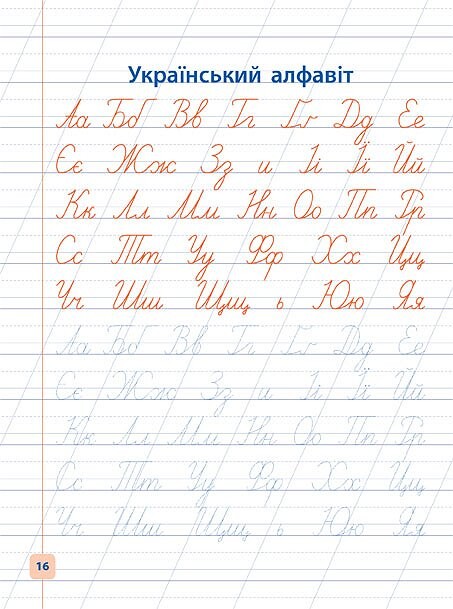 Український алфавіт
Аа Бб Вв Гг Ґґ Дд Ее
Єє Жж Зз и Іі Її Йй
Кк Лл Мм Нн Оо Пп Рр
Сс Тт Уу Фф Хх Цц
Чч Шш Щщ ь Юю Яя
Аа Бб Вв Гг Ґґ Дд Ее
Єє Жж Зз и Іі Її Йй
Кк Лл Мм Нн Оо Пп Рр
Сс Тт Уу Фф Хх Цц
Чч Шш Щщ ь Юю Яя
16